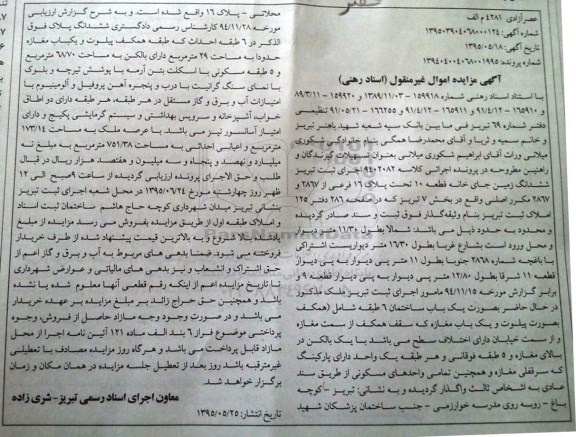 عصر آزادی ۴۲۸۱ م الف
شماره آگهی: ۱۳۹۵۰۳۹۰۴۰۶۸۰۰۰۱۲۴
تاریخ آگهی: ۱۳۹۵/۰۵/۱۸
شماره پرونده: ۱۳۹۴۰۴۰۰۴۰۶۸۰۰۱۹۹۵
آگهی مزایده اموال غیرمنقول (اسناد رهنی)
با استناد اسناد رهنی شماره ۱۵۹۹۱۸ - ۱۳۸۹/۱۱/۰۳ و ۱۵۹۹۲۰ - ۸۹/۳/۱۱
و ۱۶۵۹۱۰ - ۹۱/۴/۱۲ و ۱۶۵۹۱۱ - ۹۱/۴/۱۲ و ۱۶۶۲۵۵ - ۹۱/۰۵/۲۱ تنظیمی
دفتر شماره ۶۹ تبریز فی ما بین بانک سپه شعبه شهید باهنر تبریز
و خانم سمیه و ثریا و آقای محمدرضا همگی بنام خانوادگی شکوری
میلانی وراث آقای ابراهیم شکوری میلانی بعنوان تسهیلات گیرندگان و
راهنین مطروحه در پرونده اجرائی کلاسه ۹۴۰۲۰۸۲ اجرای ثبت تبریز
ششدانگ زمین جای خانه قطعه ۱۰ تحت پلاک ۱۶ فرعی از ۲۸۶۷ و
۲۸۶۷ مکرر اصلی واقع در بخش ۷ تبریز که در صفحه ۲۸۶ دفتر ۱۲۵
املاک ثبت تبریز بنام وثیقه‌گذار فوق ثبت و سند صادر گردیده
و محدود به حدود ذیل می باشد: شمالا بطول ۱۱/۳۰ متر دیواریست
و محل ورود است بشارع غربا بطول ۱۶/۳۰ متر دیواریست اشتراکی
با باغچه شماره ۲۸۶۸ جنوبا بطول ۱۱ متر پی دیوار به پی دیوار
قطعه ۱۱ شرقا بطول ۱۲/۸۰ متر پی دیوار به پی دیوار قطعه ۹ و
برابر گزارش مورخه ۹۴/۱۱/۱۵ مامور اجرای ثبت تبریز ملک مذکور
در حال حاضر بصورت یک باب ساختمان ۶ طبقه شامل (همکف
بصورت پیلوت و یک باب مغازه که سقف همکف از سمت مغازه
و از سمت خیابان دارای اختلاف سطح می باشد با یک بالکن در
بالای مغازه و ۵ طبقه فوقانی و هر طبقه یک واحد دارای پارکینگ
که سرقفلی مغازه و همچنین تمامی واحدهای مسکونی از طریق سند
عادی به اشخاص ثالث واگذار گردیده و به نشانی: تبریز - کوچه
باغ - روبه روی مدرسه خوارزمی - جنب ساختمان پزشکان شهید
محلاتی - پلاک ۱۶ واقع شده است. و به شرح گزارش ارزیابی
مورخه ۹۴/۱۱/۲۸ کارشناس رسمی دادگستری ششدانگ پلاک فوق
الذکر در ۶ طبقه احداث که طبقه همکف پیلوت و یکباب مغازه
حدودا به مساحت ۲۹ مترمربع دارای بالکن به مساحت ۶۸۷۰ مترمربع
و ۵ طبقه مسکونی با اسکلت بتن آرمه با پوشش تیرچه و بلوک
با نمای سنگ گرانیت با درب و پنجره آهن پروفیل و آلومینیوم با
امتیازات آب و برق و گاز مستقل در هر طبقه، هر طبقه دارای دو اطاق
خواب، آشپزخانه و سرویس بهداشتی و سیستم گرمایشی پکیج و دارای
امتیاز آسانسور نیز می باشد. با عرصه ملک به مساحت ۱۷۳/۱۴
مترمربع و اعیانی احداثی به مساحت ۷۵۱/۳۸ مترمربع به مبلغ نه
میلیارد و نهصد و پنجاه و سه میلیون و هفتصد هزار ریال در قبال
طلب و حق الاجرای پرونده ارزیابی گردیده از ساعت ۹ صبح الی ۱۲
ظهر روز چهارشنبه مورخ ۱۳۹۵/۰۶/۲۴ در محل شعبه اجرای ثبت تبریز
نشانی تبریز میدان شهرداری کوچه حاج هاشم ساختمان ثبت اسناد
و املاک طبقه اول از طریق مزایده بفروش می رسد مزایده از مبلغ
پایه شروع و به بالاترین قیمت پیشنهاد شده از طرف خریدار
فروخته می شود. ضمنا بدهی های مربوط به آب و برق و گاز اعم از
حق اشتراک و انشعاب و نیز بدهی های مالیاتی و عوارض شهرداری
تا تاریخ مزایده اعم از اینکه رقم قطعی آنها معلوم شده یا نشده
باشد و همچنین حق حراج زائد بر مبلغ مزایده بر عهده خریدار
می باشد و در صورت وجود وجه مازاد حاصل از فروش، وجوه
پرداختی موضوع فراز ۶ بند الف ماده ۱۲۱ آئین نامه اجرا از محل
مازاد قابل پرداخت می باشد و هرگاه روز مزایده مصادف با تعطیلی
غیرمترقبه باشد روز بعد از تعطیل جلسه مزایده در همان مکان و زمان
برگزار خواهد شد.
معاون اجرای اسناد رسمی تبریز - شری زاده
تاریخ انتشار: ۱۳۹۵/۰۵/۲۵